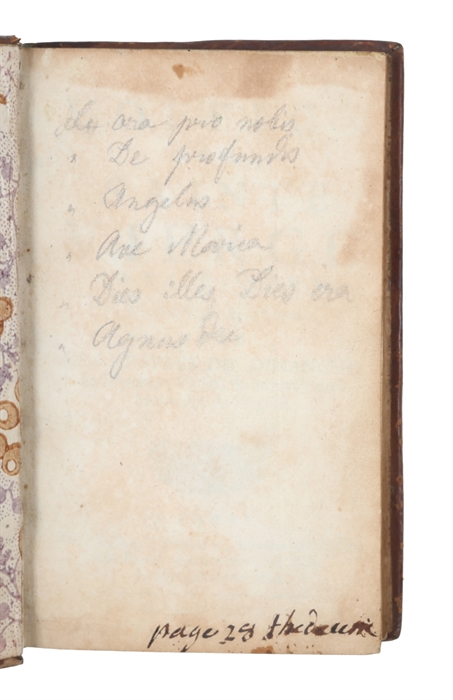 Les ora pro nobis
" De profundis
" Angelus
" Ave Maria
" Dies illes Dies ira
" Agnus dei
page 28